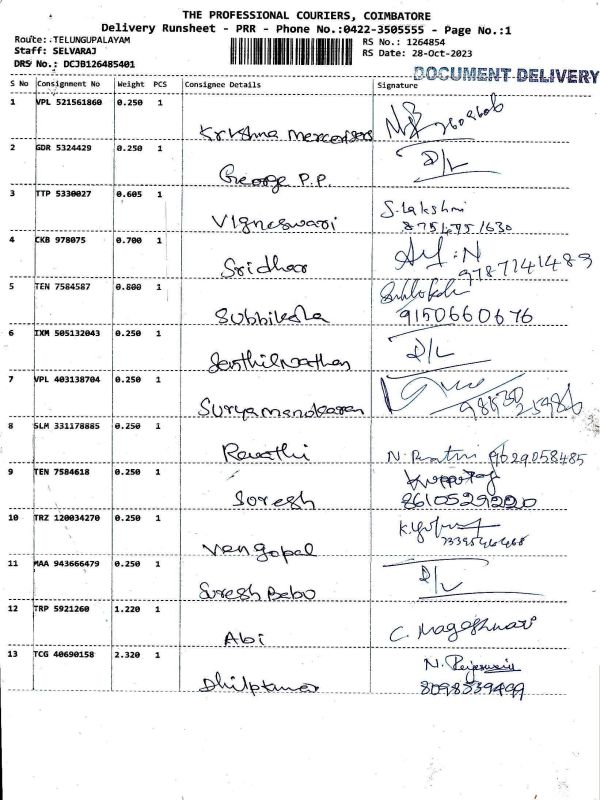 THE PROFESSIONAL COURIERS, COIMBATORE
Delivery Runsheet - PRR - Phone No.:0422-3505555 - Page No.:1
Route: TELUNGUPALAYAM
RS No.: 1264854
Staff: SELVARAJ
RS Date: 28-Oct-2023
DRS No.: DCJB126485401
DOCUMENT DELIVERY
S No Consignment No Weight PCS Consignee Details Signature
1 VPL 521561860 0.250 1
Krishna
2 GDR 5324429 0.250 1
George P.P. D/L
3 TTP 5330027 0.605 1
Vigneswari S.Lakshmi
4 CKB 978075 0.700 1
Sridhar 9787141489
5 TEN 7584587 0.800 1
Subbiksha 9150660676
6 IXM 505132043 0.250 1
Senthilnathan D/L
7 VPL 403138704 0.250 1
8 SLM 331178885 0.250 1
Revathi
9 TEN 7584618 0.250 1
Soresh 8610529220
10 TRZ 120034270 0.250 1
Vengopal
11 MAA 943666479 0.250 1
Suresh Babu D/L
12 TRP 5921260 1.220 1
Abi C. Mageshwari
13 TCG 40690158 2.320 1
8098539499